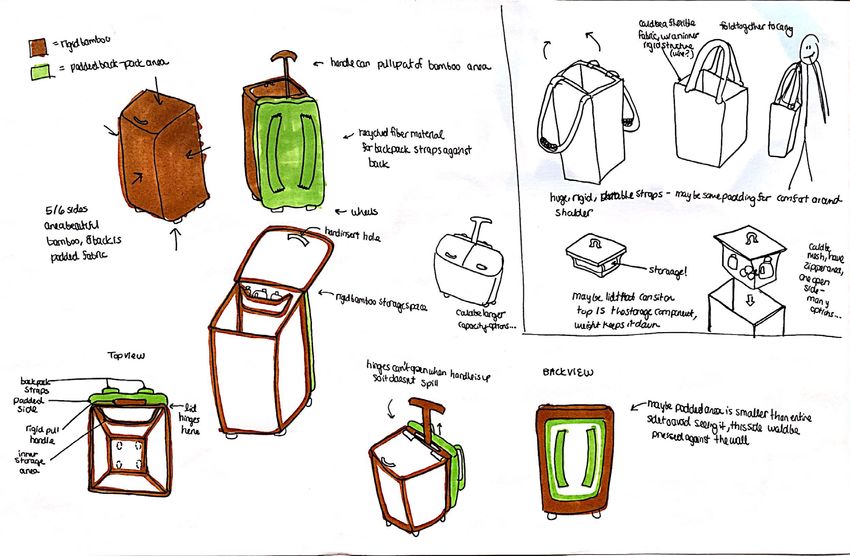 = rigid bamboo
= padded back-pack area
handle can pull up at of bamboo area
recycled fiber material
for backpack straps against
back
wheels
5/6 sides
are beautiful
bamboo, & back is
padded fabric
hand insert hole
rigid bamboo storage space
could be larger
capacity options...
Top view
backpack
straps
padded
side
rigid pull
handle
inner
storage
area
lid
hinges
here
hinges can't open when handle is up
so it doesn't spill
BACK VIEW
maybe padded area is smaller than entire
side to avoid seeing it, this side would be
pressed against the wall
could be a flexible
fabric, w/ an inner
rigid structure
(wire?)
fold together to carry
huge, rigid, straps - maybe some padding for comfort around
shoulder
storage!
maybe lid that can sit on
top IS the storage component,
weight keeps it down
could be
mesh, have
zipper area,
one open
side -
many
options...